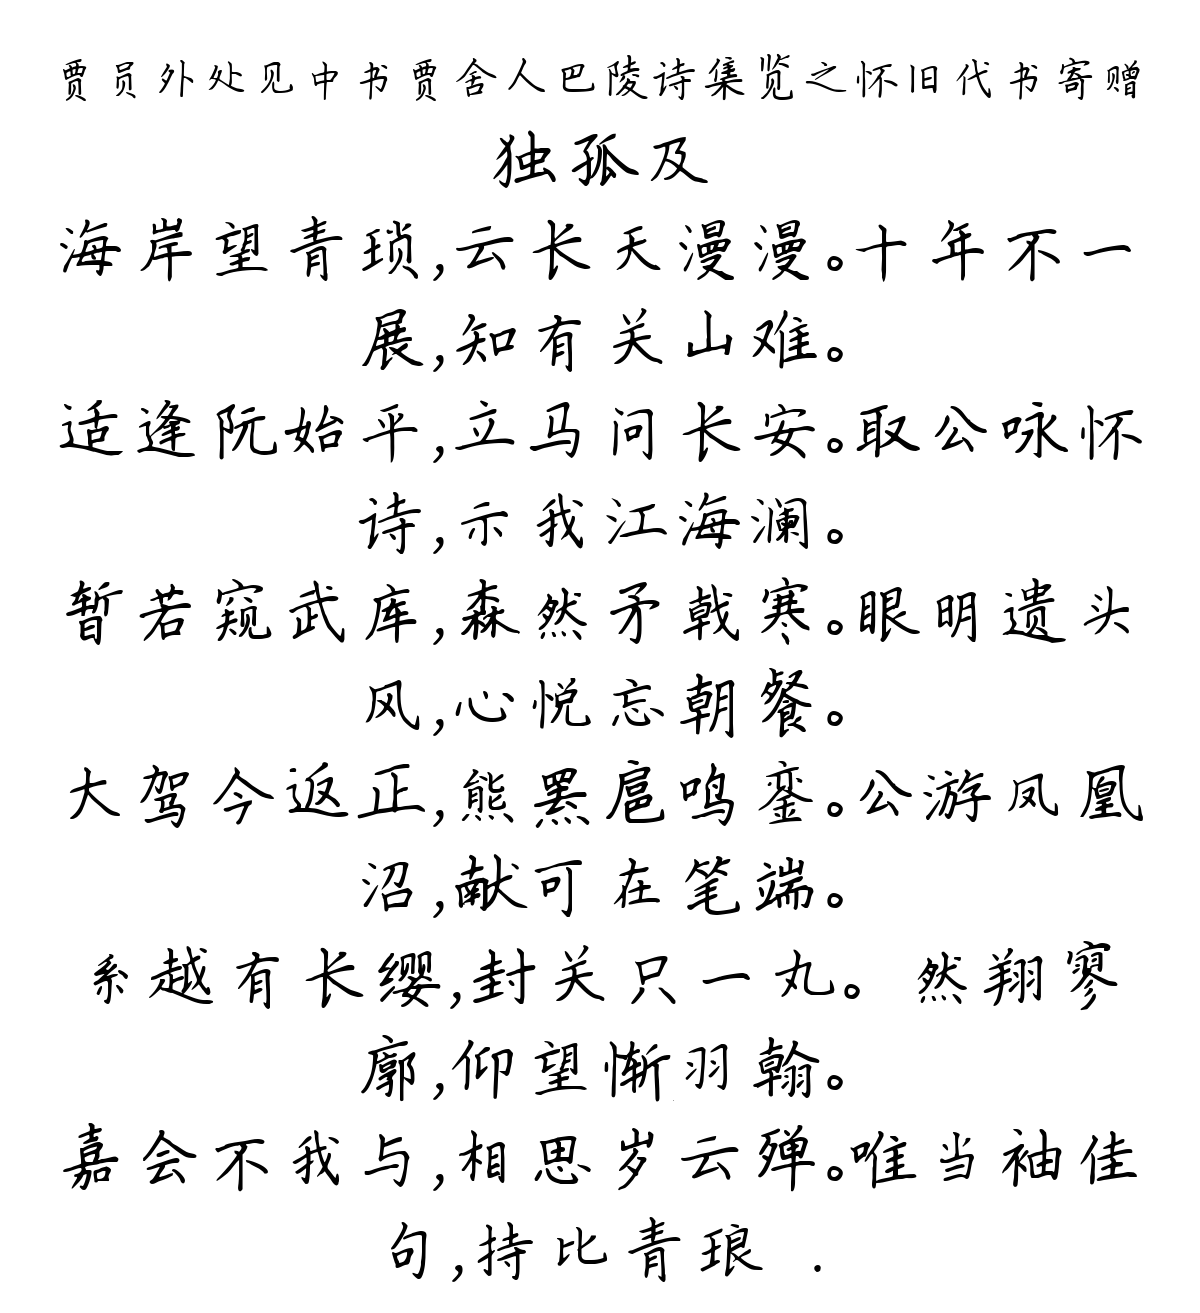 贾员外处见中书贾舍人巴陵诗集览之怀旧代书寄赠
独孤及
海岸望青琐,云长天漫漫。十年不一
展,知有关山难。
适逢阮始平,立马问长安。取公咏怀
诗,示我江海澜。
暂若窥武库,森然矛戟寒。眼明遗头
风,心悦忘朝餐。
大驾今返正,熊罴扈鸣銮。公游凤凰
沼,献可在笔端。
系越有长缨,封关只一丸。 然翔寥
廓,仰望惭羽翰。
嘉会不我与,相思岁云殚。唯当袖佳
句,持比青琅 .